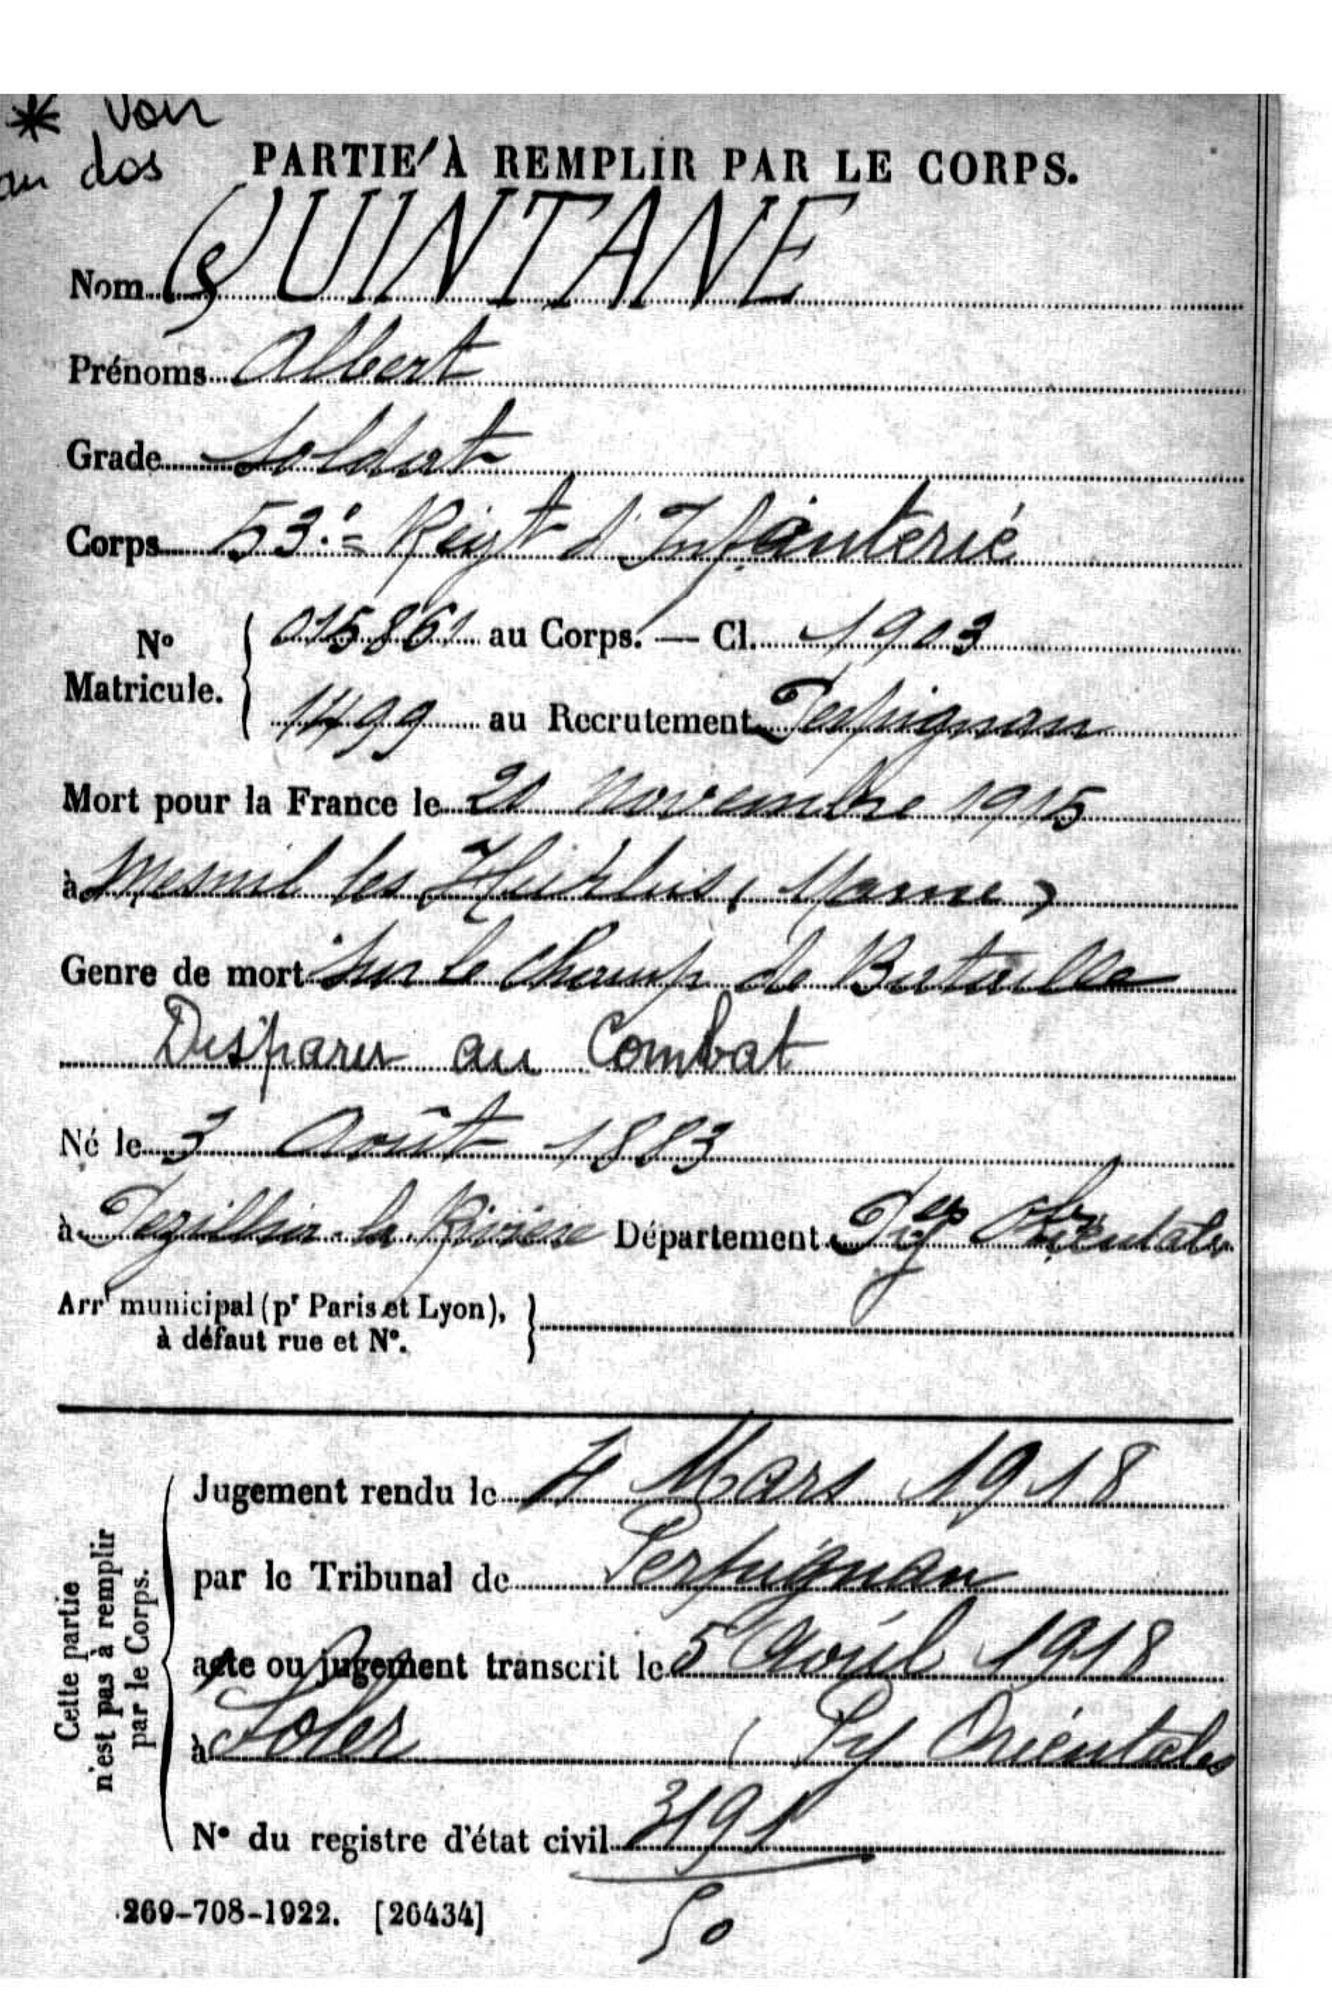 * Voir
au dos
PARTIE À REMPLIR PAR LE CORPS.
Nom QUINTANE
Prénoms Albert
Grade Soldat
Corps 53e Regt d'Infanterie
No Matricule. { 015861 au Corps. — Cl. 1903
1499 au Recrutement Perpignan
Mort pour la France le 21 Novembre 1915
à Mesnil les Hurlus (Marne)
Genre de mort Sur le Champ de Bataille
Disparu au Combat
Né le 3 Août 1883
à Pezilla-la-Rivière Département Pyées Orientales
Arrt municipal (pr Paris et Lyon), à défaut rue et No. }
Cette partie n'est pas à remplir par le Corps.
Jugement rendu le 4 Mars 1918
par le Tribunal de Perpignan
acte ou jugement transcrit le 5 Août 1918
à Soler (Py Orientales
No du registre d'état civil
50
269-708-1922. [26434]